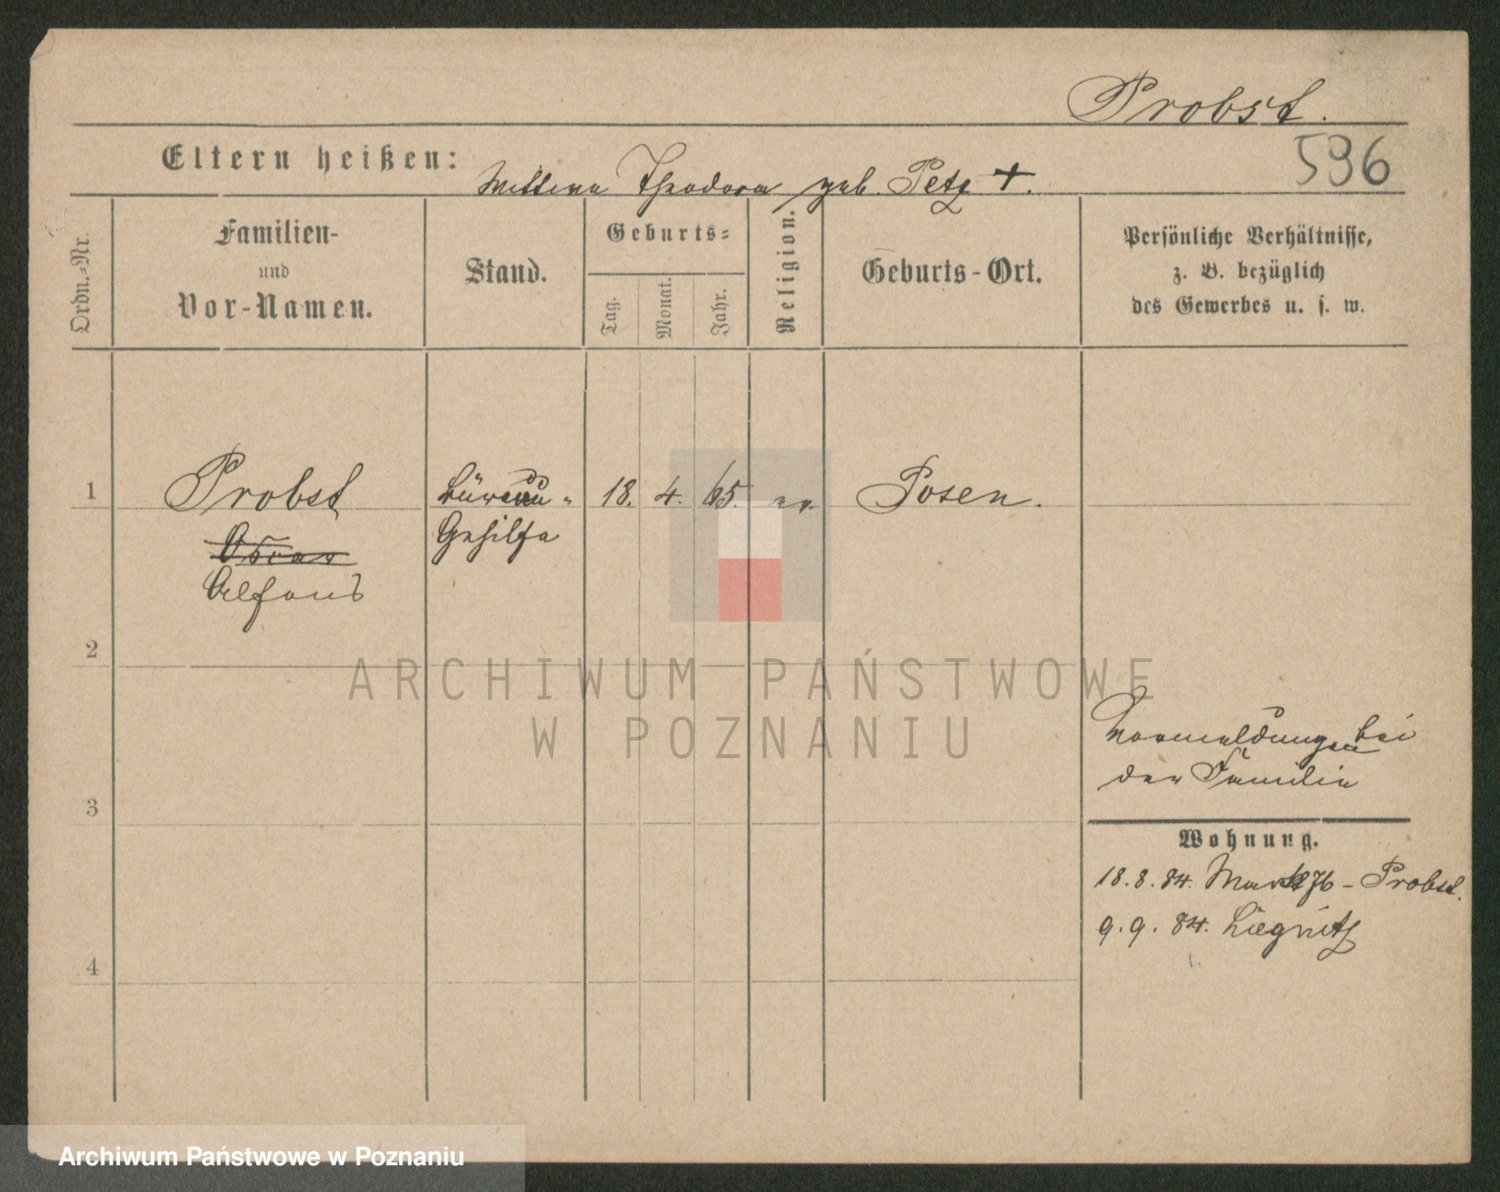 Probst.
596
Eltern heißen: Wittwe Theodora geb. Petz +.
Ordn.=Nr.
Familien-
und
Vor-Namen.
Stand.
Geburts=
Tag.
Monat.
Jahr.
Religion.
Geburts-Ort.
Persönliche Verhältnisse,
z. B. bezüglich
des Gewerbes u. s. w.
1 Probst Büreau- 18. 4. 65. ev. Posen.
Oscar Gehilfe
Alfons
2
3
4
Vormeldungen bei
der Familie
Wohnung.
18.8.84. Markt 76 - Probst.
9.9.84. Liegnitz
ARCHIWUM PAŃSTWOWE
W POZNANIU
Archiwum Państwowe w Poznaniu